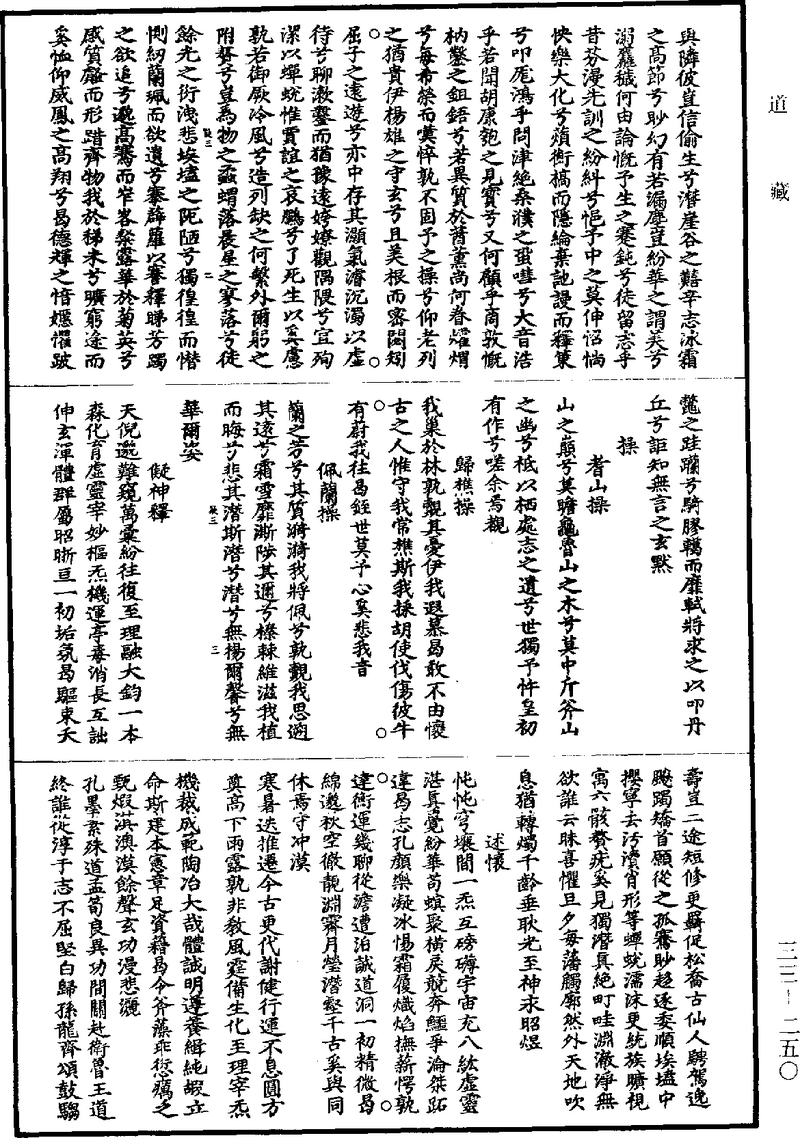 道藏
與隣彼豈信偷生兮潛崖谷之囏辛志冰霜
之高節兮眇幻有若漏塵豈紛華之謂美兮
溺麤穢何由論慨予生之蹇鈍兮徒留志乎
昔芬漫先訓之紛糾兮悒予中之莫伸怊惝
快樂大化兮蘋衡槁而隱淪棄訑謾而釋策
兮叩厖鴻乎問津絶桑濮之蛩嘒兮大音浩
乎若聞胡康匏之見寶兮又何顧乎商敦慨
枘鑿之鉏鋙兮若異質於蕕薰尚何眷熠燿
兮每希榮而嘆悴孰不固予之操兮仰老列
之猶貴伊楊雄之守玄兮且美根而密閟矧
屈子之遠遊兮亦中存其灝氣濬沉濁以虚
待兮聊漱鑿而猶豫遠嫽嫽觀隅隈兮宜殉
潔以蟬蛻惟賈誼之哀鵩兮了死生以奚慮
孰若御厥冷風兮造列缺之何繫外爾躬之
附贅兮豈為物之蝱蝟落晨星之寥落兮徒
餘光之衒洩悲埃壒之阨陋兮獨徨徨而憯
惻紉蘭珮而欲遺兮搴薜蘿以騫釋睇芳躅
之欲追兮邈高騖而罕峉粲露華於菊英兮
感質齪而形踖齊物我於稊米兮曠窮途而
奚恤仰威鳳之高翔兮曷德輝之愔嫕懼跛
鼈之跬躃兮騎膠轕而靡軾將求之以叩丹
丘兮詎知無言之玄默
操
耆山操
山之巔兮莫瞻龜魯山之木兮莫中斤斧山
之幽兮柢以栖處志之遺兮世獨予忤皇初
有作兮嗟余焉覩
歸樵操
我巢於林孰覯其憂伊我遐慕曷敢不由懷
古之人惟守我常樵斯我採胡使伐傷彼牛
有蔚我往曷銍世莫予心奚悲我音
佩蘭操
蘭之芳兮其質漪漪我將佩兮孰觀我思遡
其遠兮霜雪靡澌陟其邇兮榛棘維滋我植
而晦兮悲其潛斯潛兮潛兮無楊爾馨兮無
華爾姿
擬神釋
天倪邈難窺萬彙紛往復至理融大鈞一本
森化育虚靈宰妙樞炁機運亭毒消長互詘
伸玄渾體群屬昭晰亘一初垢氛曷驅束夭
壽豈二途短修更羇促松喬古仙人鸞駕逸
飈躅矯首願從之孤騫眇超逐委順埃壒中
攖寧去汚瀆肖形等蟬蛻濡沫更統族曠視
寓六骸贅疣奚見獨潛真絶町畦淵澈淨無
欲誰云昧喜懼旦夕每藩觸廓然外天地吹
息猶轉燭千齡垂耿光至神求昭煜
述懷
忳忳穹壤間一炁互磅礴宇宙充八紘虚靈
湛真覺紛華苟蟻聚橫戾競奔鱷爭淪桀跖
違曷志孔顏樂凝冰惕霜履熾焰撫薪愕孰
達衝運幾聊從澹遭泊誠道洞一初精微曷
綿邈秋空徹靚淵霽月瑩潛壑千古奚與同
休焉守冲漠
寒暑迭推遷今古更代謝健行運不息圓方
奠高下雨露孰非教風霆備生化至理宰炁
機裁成範陶冶大哉體誠明遵養緝純嘏立
命斯建本憲章足資藉曷令斧藻乖愆癘之
甄煆淇澳漠餘聲玄功漫悲灑
孔墨素殊道孟荀良異功間關赴衛魯王道
終誰從淳于志不屈堅白歸孫龍齊頌鼓騶
三三—二五〇